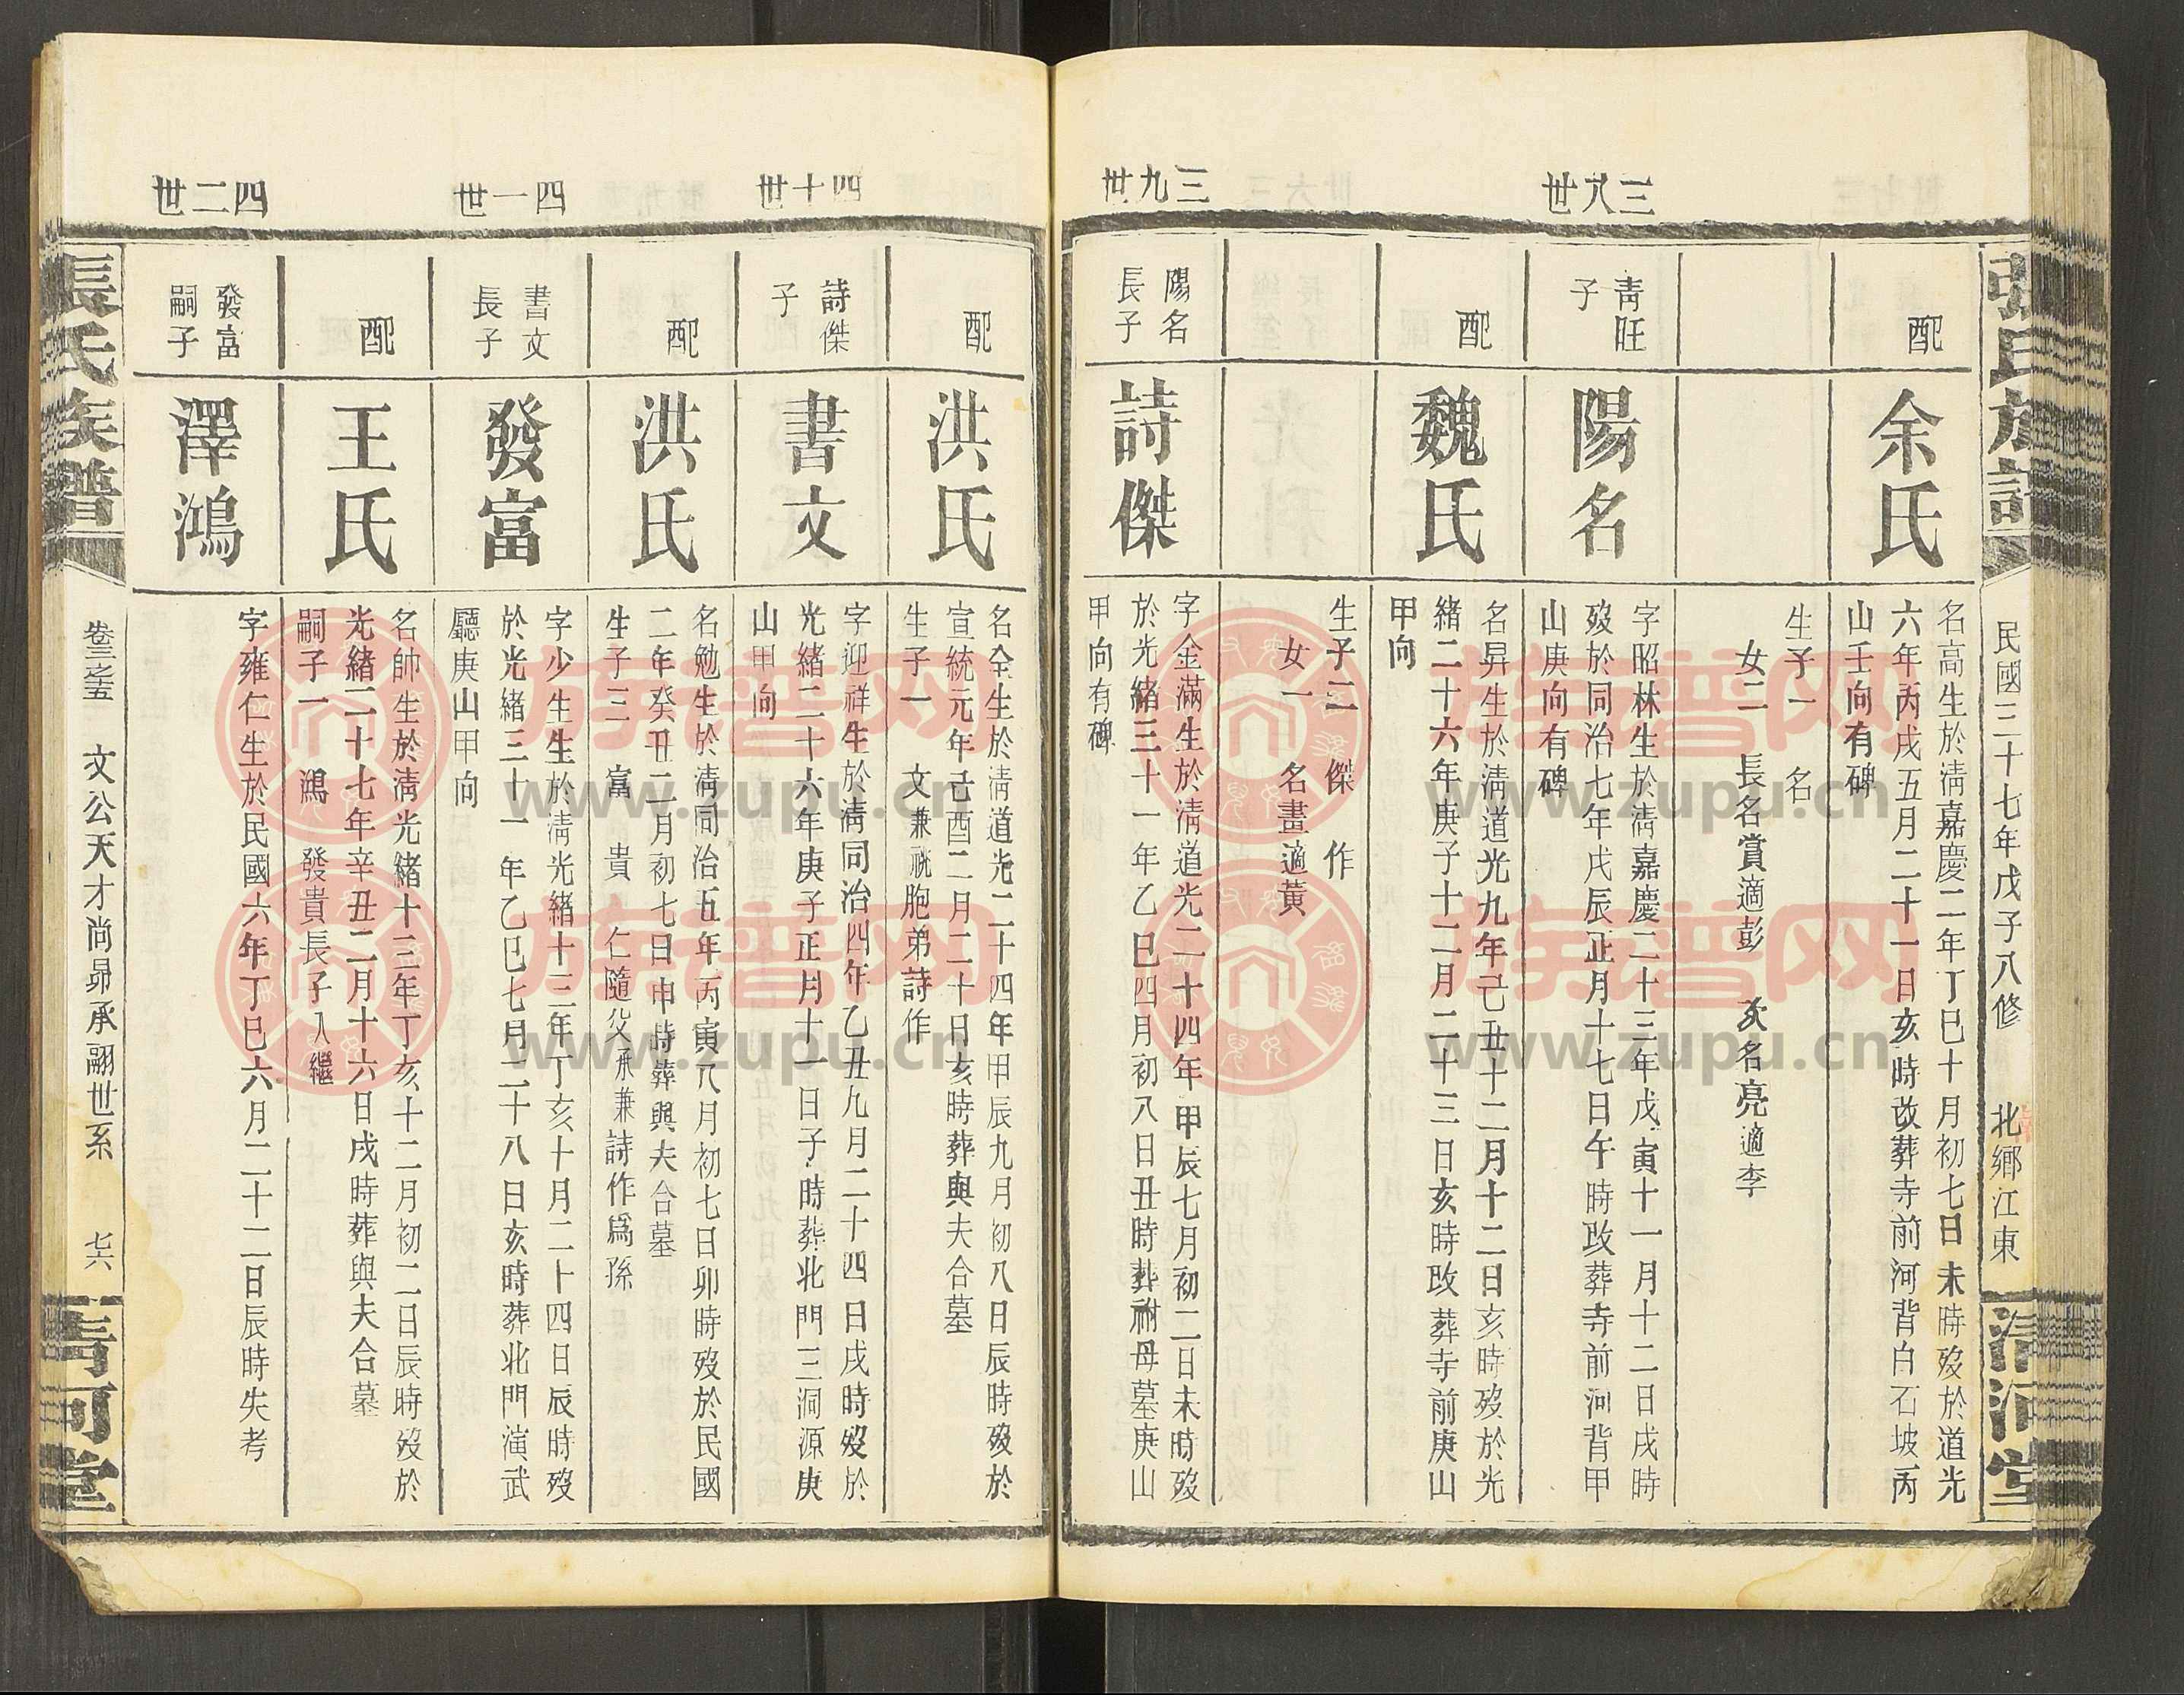 張氏族譜
民國三十七年戊子八修
北鄉江東
清河堂
配
余氏
名高生於清嘉慶二年丁巳十月初七日未時歿於道光
六年丙戌五月二十一日亥時改葬寺前河背白石坡丙
山壬向有碑
生子一 名
女二 長名賞適彭 次名亮適李
三八世
青旺
子
陽名
字昭林生於清嘉慶二十三年戊寅十一月十二日戌時
歿於同治七年戊辰正月十七日午時改葬寺前河背甲
山庚向有碑
配
魏氏
名昇生於清道光九年己丑十二月十二日亥時歿於光
緒二十六年庚子十二月二十三日亥時改葬寺前庚山
甲向
生子二 傑 作
女一 名畫適黃
三九世
陽名
長子
詩傑
字金滿生於清道光二十四年甲辰七月初二日未時歿
於光緒三十一年乙巳四月初八日丑時葬祔母墓庚山
甲向有碑
配
洪氏
名全生於清道光二十四年甲辰九月初八日辰時歿於
宣統元年己酉二月二十日亥時葬與夫合墓
生子一 文兼祧胞弟詩作
四十世
詩傑
子
書文
字迎祥生於清同治四年乙丑九月二十四日戌時歿於
光緒二十六年庚子正月十一日子時葬北門三洞源庚
山甲向
配
洪氏
名勉生於清同治五年丙寅八月初七日卯時歿於民國
二年癸丑二月初七日申時葬與夫合墓
生子三 富 貴 仁隨父承兼詩作爲孫
四一世
書文
長子
發富
字少生生於清光緒十三年丁亥十月二十四日辰時歿
於光緒三十一年乙巳七月二十八日亥時葬北門演武
廳庚山甲向
配
王氏
名帥生於清光緒十三年丁亥十二月初二日辰時歿於
光緒二十七年辛丑二月十六日戌時葬與夫合墓
嗣子一 鴻 發貴長子入繼
四二世
發富
嗣子
澤鴻
字雍仁生於民國六年丁巳六月二十二日辰時失考
張氏族譜
卷三之五 文公天才尚昴承翮世系 七六
清河堂
族譜网
www.zupu.cn
族譜网
www.zupu.cn
族譜网
www.zupu.cn
族譜网
www.zupu.cn